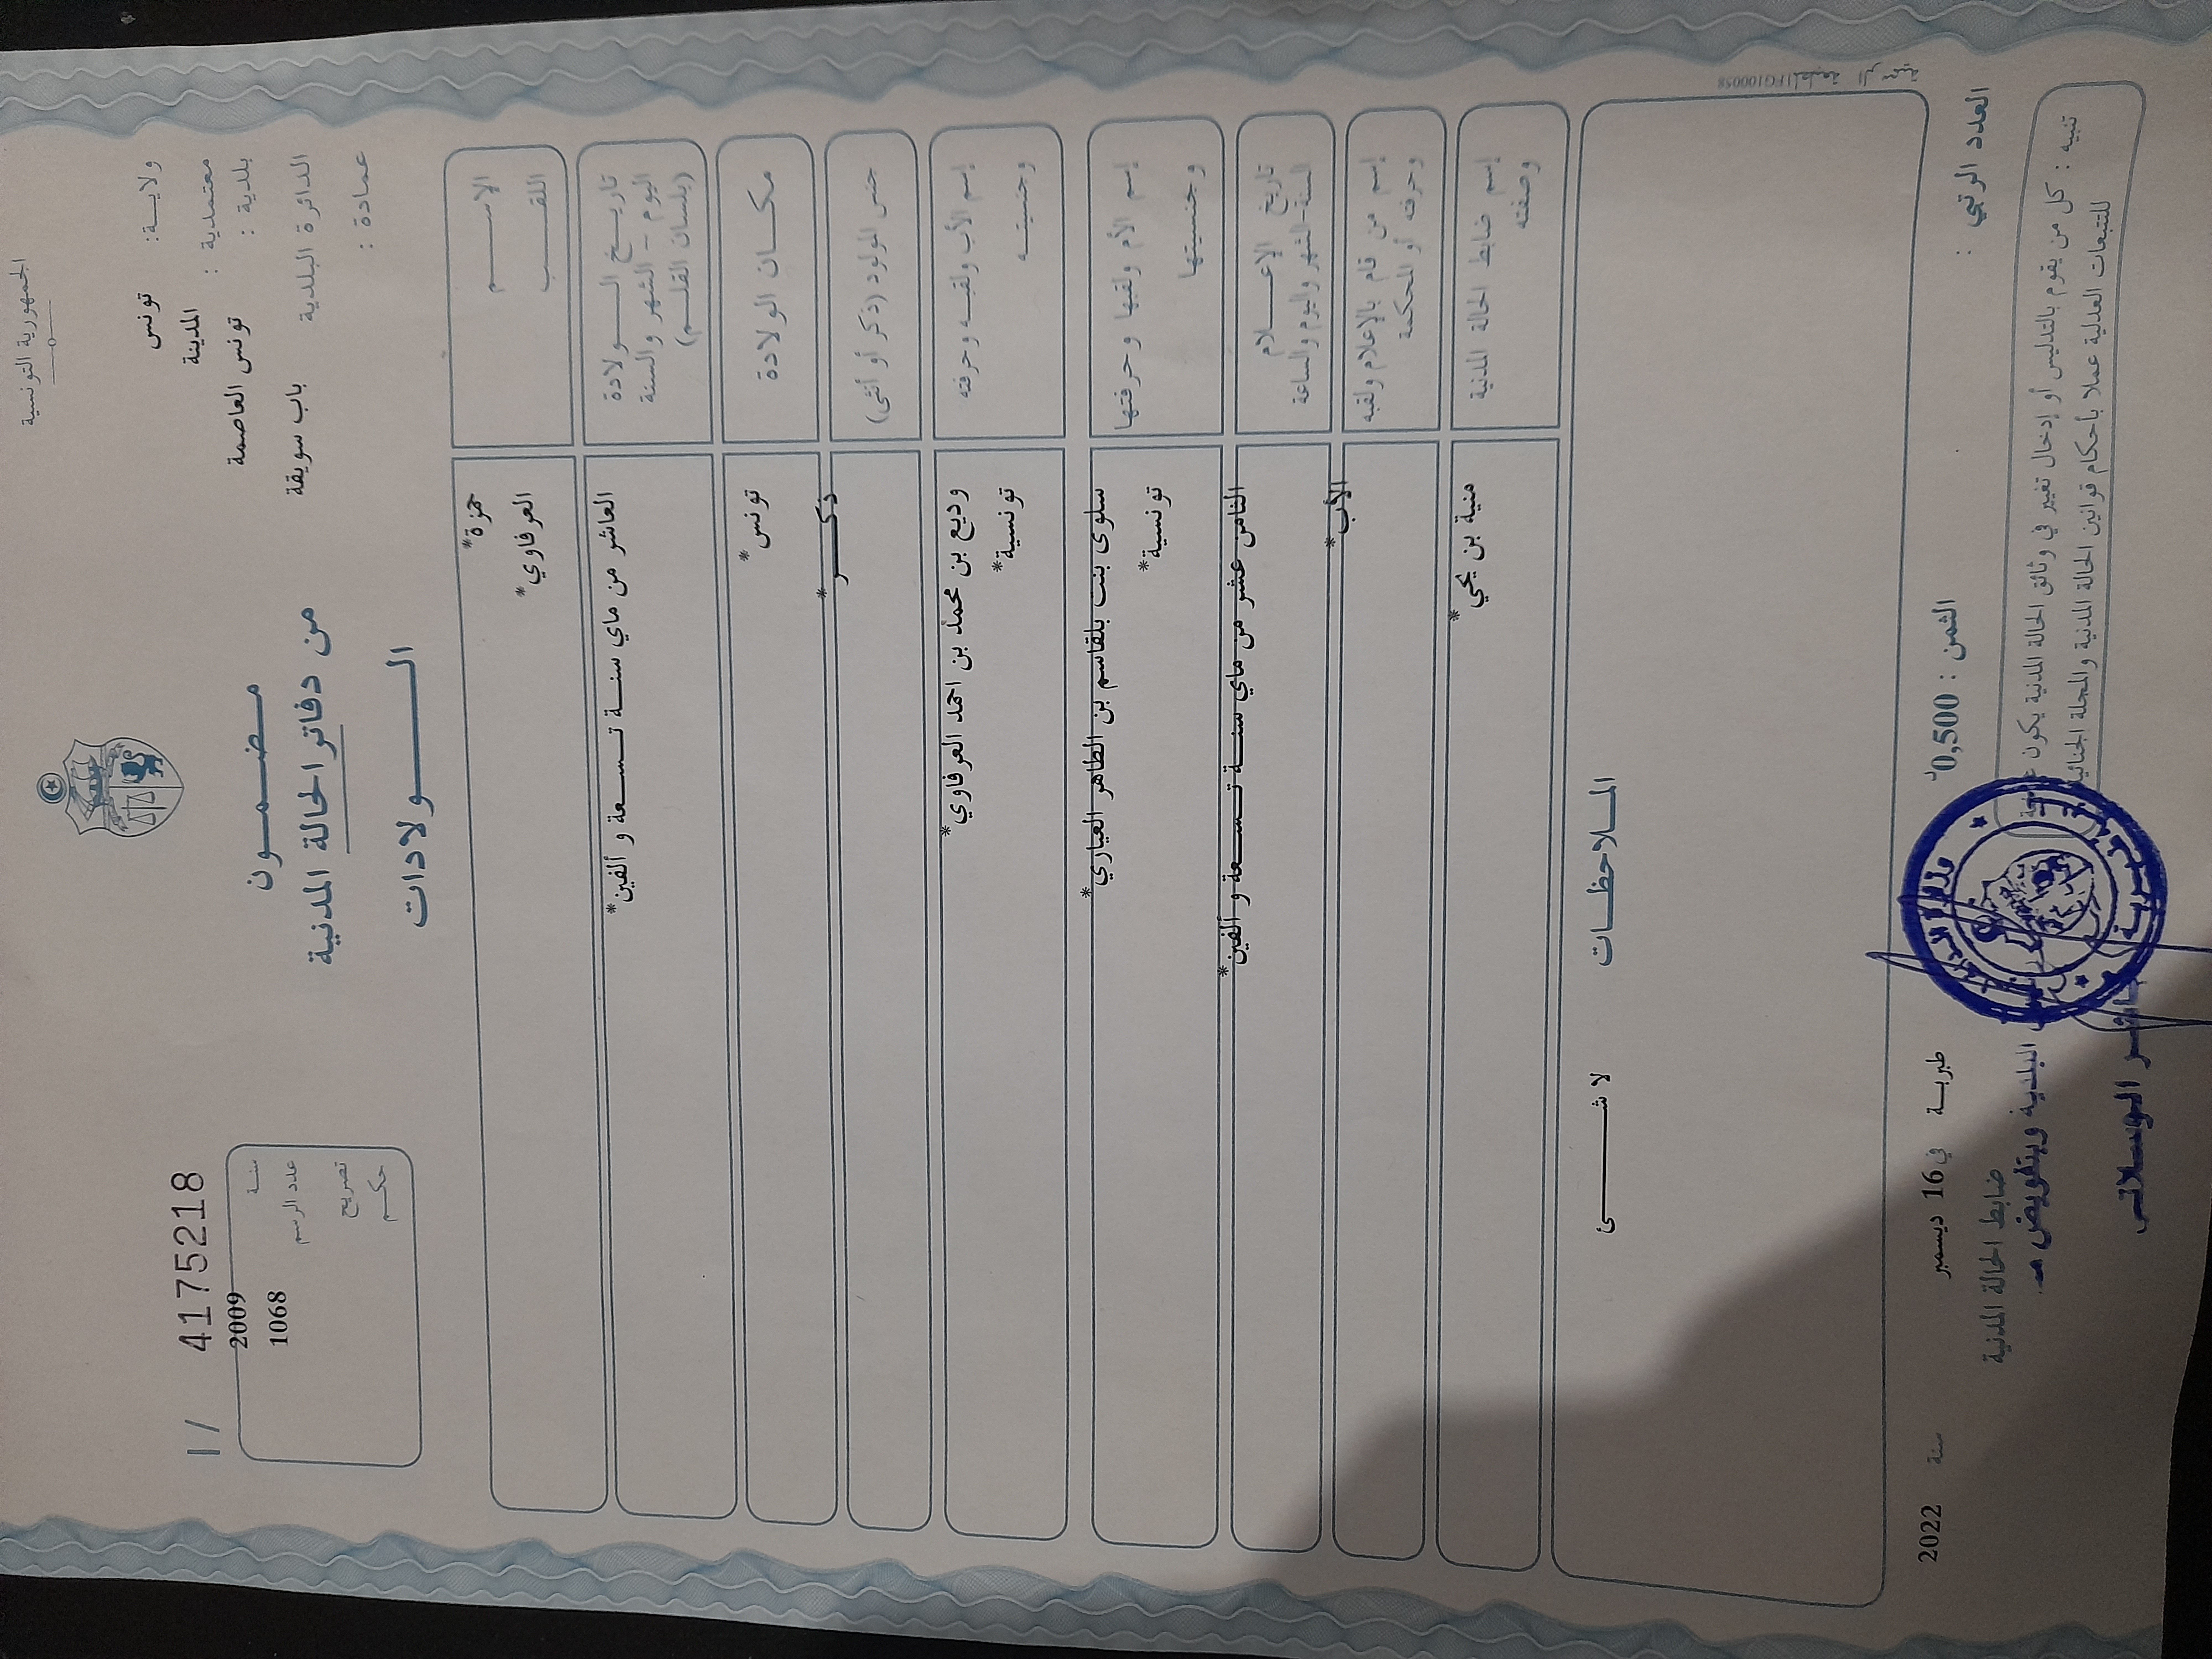 الجمهورية التونسية
ولاية: تونس
معتمدية : المدينة
بلدية : تونس العاصمة
الدائرة البلدية باب سويقة
عمادة :
مضمون
من دفاتر الحالة المدنية
الولادات
1/ 4175218
سنة 2009
عدد الرسم 1068
تصريح
حكم
الاسم
اللقب
حمزة*
العرفاوي*
تاريخ الولادة
اليوم - الشهر والسنة
(بلسان القلم)
العاشر من ماي سنة تسعة و ألفين*
مكان الولادة
تونس*
جنس المولود (ذكر أو أنثى)
ذكر*
إسم الأب ولقبه وحرفته
وجنسيته
وديع بن محمد بن احمد العرفاوي*
تونسية*
إسم الأم ولقبها وحرفتها
وجنسيتها
سلوى بنت بلقاسم بن الطاهر العياري*
تونسية*
تاريخ الإعلام
السنة-الشهر واليوم والساعة
الثامن عشر من ماي سنة تسعة و ألفين*
إسم من قام بالإعلام ولقبه
وحرفته أو المحكمة
الأب*
إسم ضابط الحالة المدنية
وصفته
منية بن يحي*
الملاحظات
لا شئ
المطبعة الرسمية
العدد الرتبي :
الثمن : 0,500د
طبربة في 16 ديسمبر سنة 2022
ضابط الحالة المدنية
تنبيه : كل من يقوم بالتدليس أو إدخال تغيير في وثائق الحالة المدنية يكون عرضة
للتتبعات العدلية عملا بأحكام قوانين الحالة المدنية والمجلة الجنائية